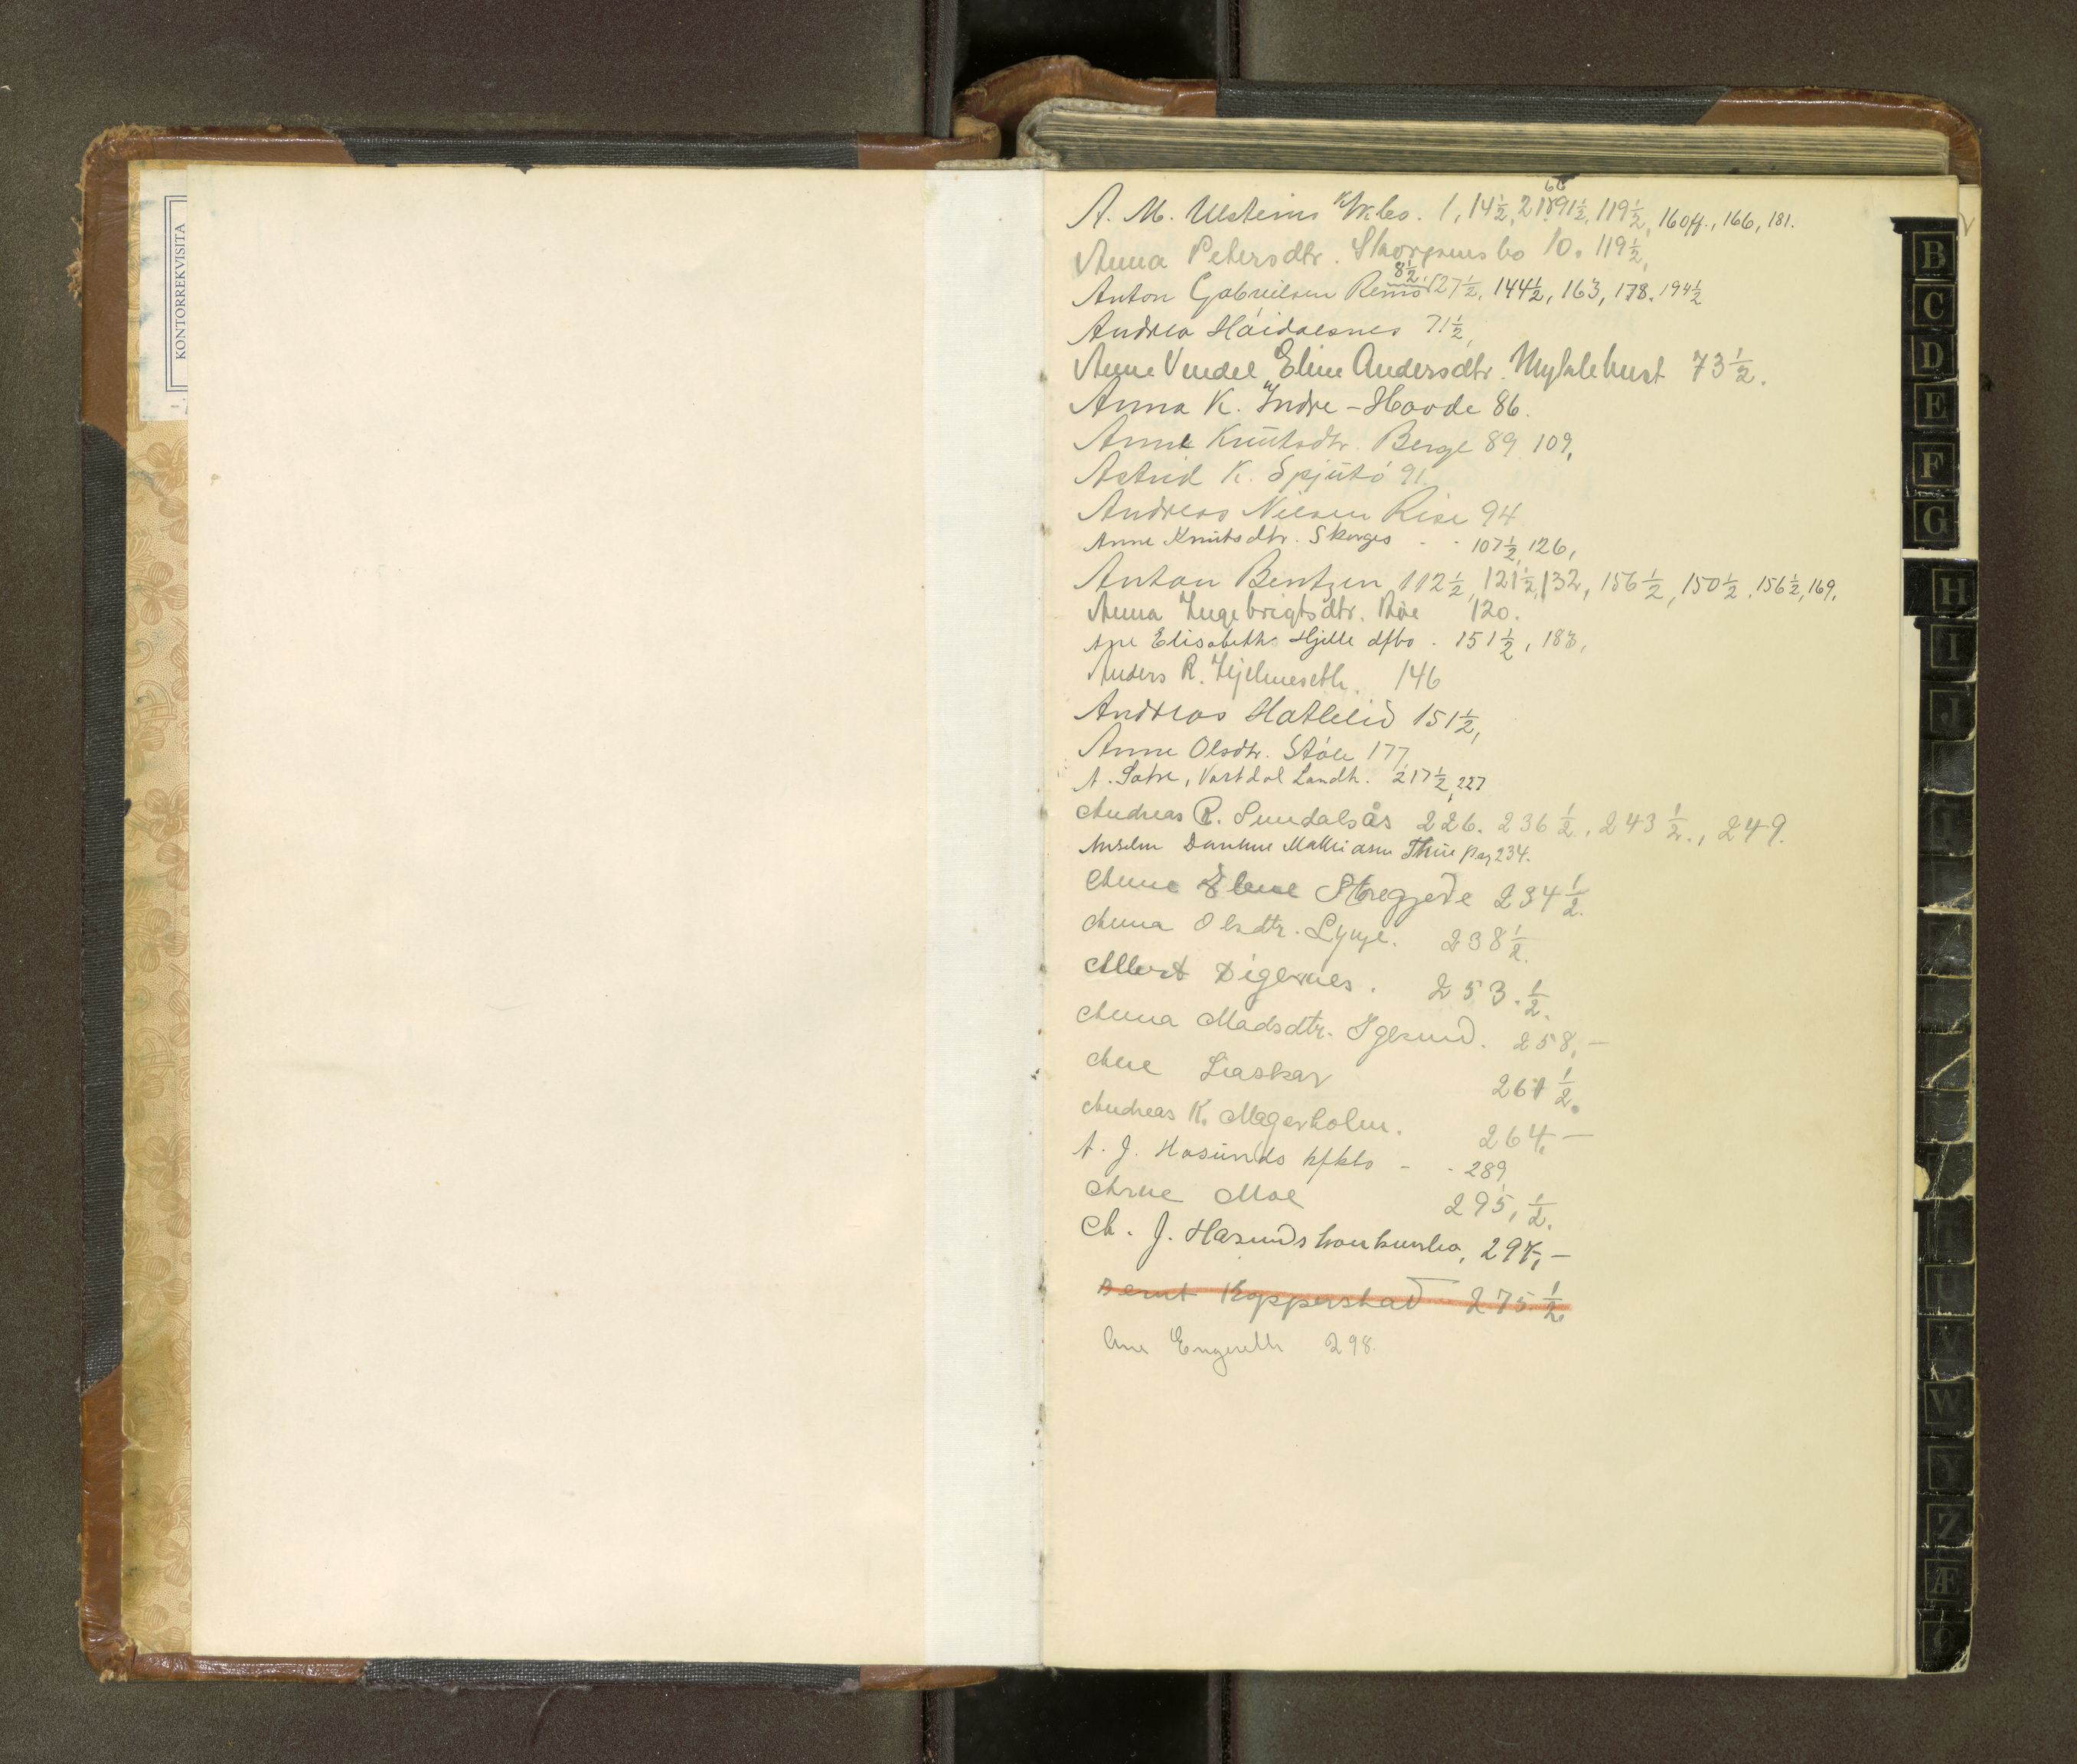 KONTORREKVISITA
A. M. Ulsteins k/k.bo. 1, 14½, 21, 66, 91½, 119½, 160ff., 166, 181.
Anna Petersdtr. Skorgens bo 10. 119½,
Anton Gabrielsen Remö 8½. 27½, 144½, 163, 178. 194½
Andrea Háidalsnes 71½,
Anne Vendel Eline Andersdtr. Myklebust 73½.
Anna K. Indre-Hovde 86.
Anne Knutsdtr. Berge 89 109,
Astrid K. Spjutö 91.
Andreas Nilsen Rise 94
Anne Knutsdtr. Skorges - - 107½, 126,
Anton Bentzen 112½, 121½, 132, 156½, 150½, 156½, 169,
Anna Ingebrigtsdtr. 120.
Elisabeths Hjelle d/bo. 151½, 183,
Anders R. Hjelmeseth. 146
Andreas Hatlelid 151½,
Anne Olsdtr. Støle 177,
A. Sætre, Vartdal Landh. 217½, 227
Andreas R. Sundalsås 226. 236½, 243½., 249.
Anselm Mathiasen Thue pag 234.
Anne Elene Storegjerde 234½.
Anna Olsdtr. Lynge. 238½.
Albert Digernes. 253.½.
Anna Madsdtr. Igesund. 258,-
Ane Liaskar 261½.
Andreas K. Magerholm. 264,-
A. J. Hasunds kfkbo - - 289,
Arne Moe 295,½.
A. J. Hasunds konkursbo, 297,-
Bernt Kopperstad 275.½
Ane Engeseth 298.
B
C
D
E
F
G
H
I
J
L
U
V
W
Y
Z
Æ
Ø